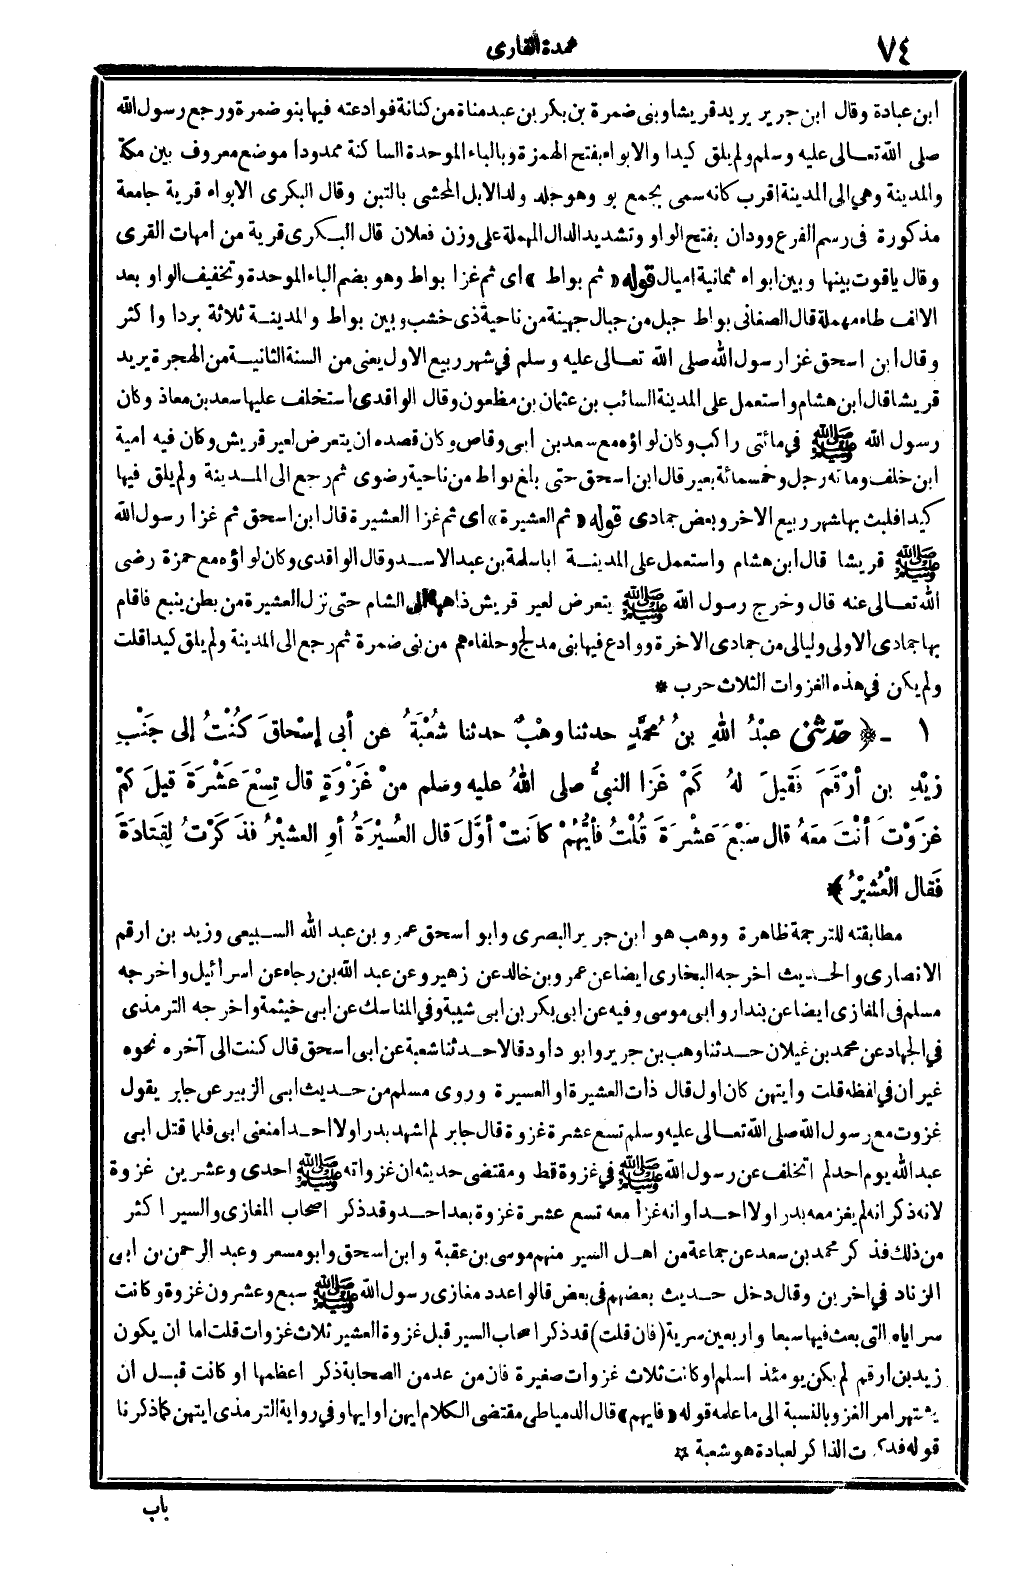 ٧٤
عمدة القارى
ابن عبادة وقال ابن جرير يريد قريشا وبنى ضمرة بن بكر بن عبد مناة من كنانة فوادعته فيها بنو ضمرة ورجع رسول الله
صلى الله تعالى عليه وسلم ولم يلق كيدا والابواء بفتح الهمزة وبالباء الموحدة الساكنة ممدودا موضع معروف بين مكة
والمدينة وهي الى المدينة اقرب كانه سمى بجمع بو وهو جلد ولد الابل المحشى بالتبن وقال البكرى الابواء قرية جامعة
مذكورة فى رسم الفرع وودان بفتح الواو وتشديد الدال المهملة على وزن فعلان قال البكرى قرية من امهات القرى
وقال ياقوت بينها وبين ابواء ثمانية اميال قوله « ثم بواط » اى ثم غزا بواط وهو بضم الباء الموحدة وتخفيف الواو بعد
الالف طاء مهملة قال الصغانى بواط جبل من جبال جهينة من ناحية ذى خشب وبين بواط والمدينة ثلاثة برد او اكثر
وقال ابن اسحق غزا رسول الله صلى الله تعالى عليه وسلم في شهر ربيع الاول يعنى من السنة الثانية من الهجرة يريد
قريشا قال ابن هشام واستعمل على المدينة السائب بن عثمان بن مظعون وقال الواقدى استخلف عليها سعد بن معاذ وكان
رسول الله ﷺ في مائتى راكب وكان لواؤه مع سعد بن ابى وقاص وكان قصده ان يتعرض لعير قريش وكان فيه امية
ابن خلف ومائة رجل وخمسمائة بعير قال ابن اسحق حتى بلغ بواط من ناحية رضوى ثم رجع الى المدينة ولم يلق فيها
كيدا فلبث بها شهر ربيع الاخر وبعض جمادى قوله « ثم العشيرة » اى ثم غزا العشيرة قال ابن اسحق ثم غزا رسول الله
ﷺ قريشا قال ابن هشام واستعمل على المدينة اباسلمة بن عبد الاسد وقال الواقدى وكان لواؤه مع حمزة رضى
الله تعالى عنه قال وخرج رسول الله ﷺ يتعرض لعير قريش ذاهبة الى الشام حتى نزل العشيرة من بطن ينبع فاقام
بها جمادى الاولى وليالى من جمادى الاخرة ووادع فيها بنى مدلج وحلفاءهم من بنى ضمرة ثم رجع الى المدينة ولم يلق كيدا قلت
ولم يكن في هذه الغزوات الثلاث حرب *
١ - ﴿ حدّثنى عبْدُ اللهِ بنُ مُحمَّدٍ حدثنا وهْبٌ حدثنا شُعْبَةُ عن أبى إسْحاقَ كُنْتُ إلى جَنْبِ
زيْدِ بن أرْقَمَ فَقيلَ لهُ كَمْ غَزَا النبىُّ صلى اللهُ عليه وسَلم منْ غَزْوَةٍ قال تِسْعَ عَشْرَةَ قيلَ كَمْ
غزَوْتَ أنْتَ معَهُ قال سَبْعَ عَشْرَةَ قُلْتُ فأيُّهُمْ كانَتْ أوَّلَ قال العُسَيْرَةُ أوِ العشَيْرُ فذَكَرْتُ لِقتَادَةَ
فَقال الْعُشَيْرُ ﴾ *
مطابقته للترجمة ظاهرة ووهب هو ابن جرير البصرى وابو اسحق عمرو بن عبد الله السبيعى وزيد بن ارقم
الانصارى والحديث اخرجه البخارى ايضا عن عمرو بن خالد عن زهير وعن عبد الله بن رجاء عن اسرائيل واخرجه
مسلم فى المغازى ايضا عن بندار وابى موسى وفيه عن ابى بكر بن ابى شيبة وفي المناسك عن ابى خيثمة واخرجه الترمذى
في الجهاد عن محمد بن غيلان حدثنا وهب بن جرير وابو داود قالا حدثنا شعبة عن ابى اسحق قال كنت الى آخره نحوه
غير أن في لفظه قلت وايتهن كان اول قال ذات العشيرة او العسيرة وروى مسلم من حديث ابى الزبير عن جابر يقول
غزوت مع رسول الله صلى الله تعالى عليه وسلم تسع عشرة غزوة قال جابر لم اشهد بدرا ولا احدا منعنى ابى فلما قتل ابى
عبد الله يوم احد لم اتخلف عن رسول الله ﷺ في غزوة قط ومقتضى حديثه ان غزواته ﷺ احدى وعشرين غزوة
لانه ذكر انه لم يغز معه بدرا ولا احدا وانه غزا معه تسع عشرة غزوة بعد احد وقد ذكر اصحاب المغازى والسير اكثر
من ذلك فذكر محمد بن سعد عن جماعة من اهل السير منهم موسى بن عقبة وابن اسحق وابو مسعر وعبد الرحمن بن ابى
الزناد في اخرين وقال دخل حديث بعضهم فى بعض قالوا عدد مغازى رسول الله ﷺ سبع وعشرون غزوة وكانت
سراياه التى بعث فيها سبعا واربعين سرية (فان قلت) قد ذكر اصحاب السير قبل غزوة العشير ثلاث غزوات قلت اما ان يكون
زيد بن ارقم لم يكن يومئذ اسلم او كانت ثلاث غزوات صغيرة فان من عد من الصحابة ذكر اعظمها او كانت قبل أن
يشتهر امر الغزو بالنسبة الى ما علمه قوله « فايهم » قال الدمياطى مقتضى الكلام ايهن او ايها وفي رواية الترمذى ايتهن كما ذكرنا
قوله الذاكر لعبادة هو شعبة *
باب